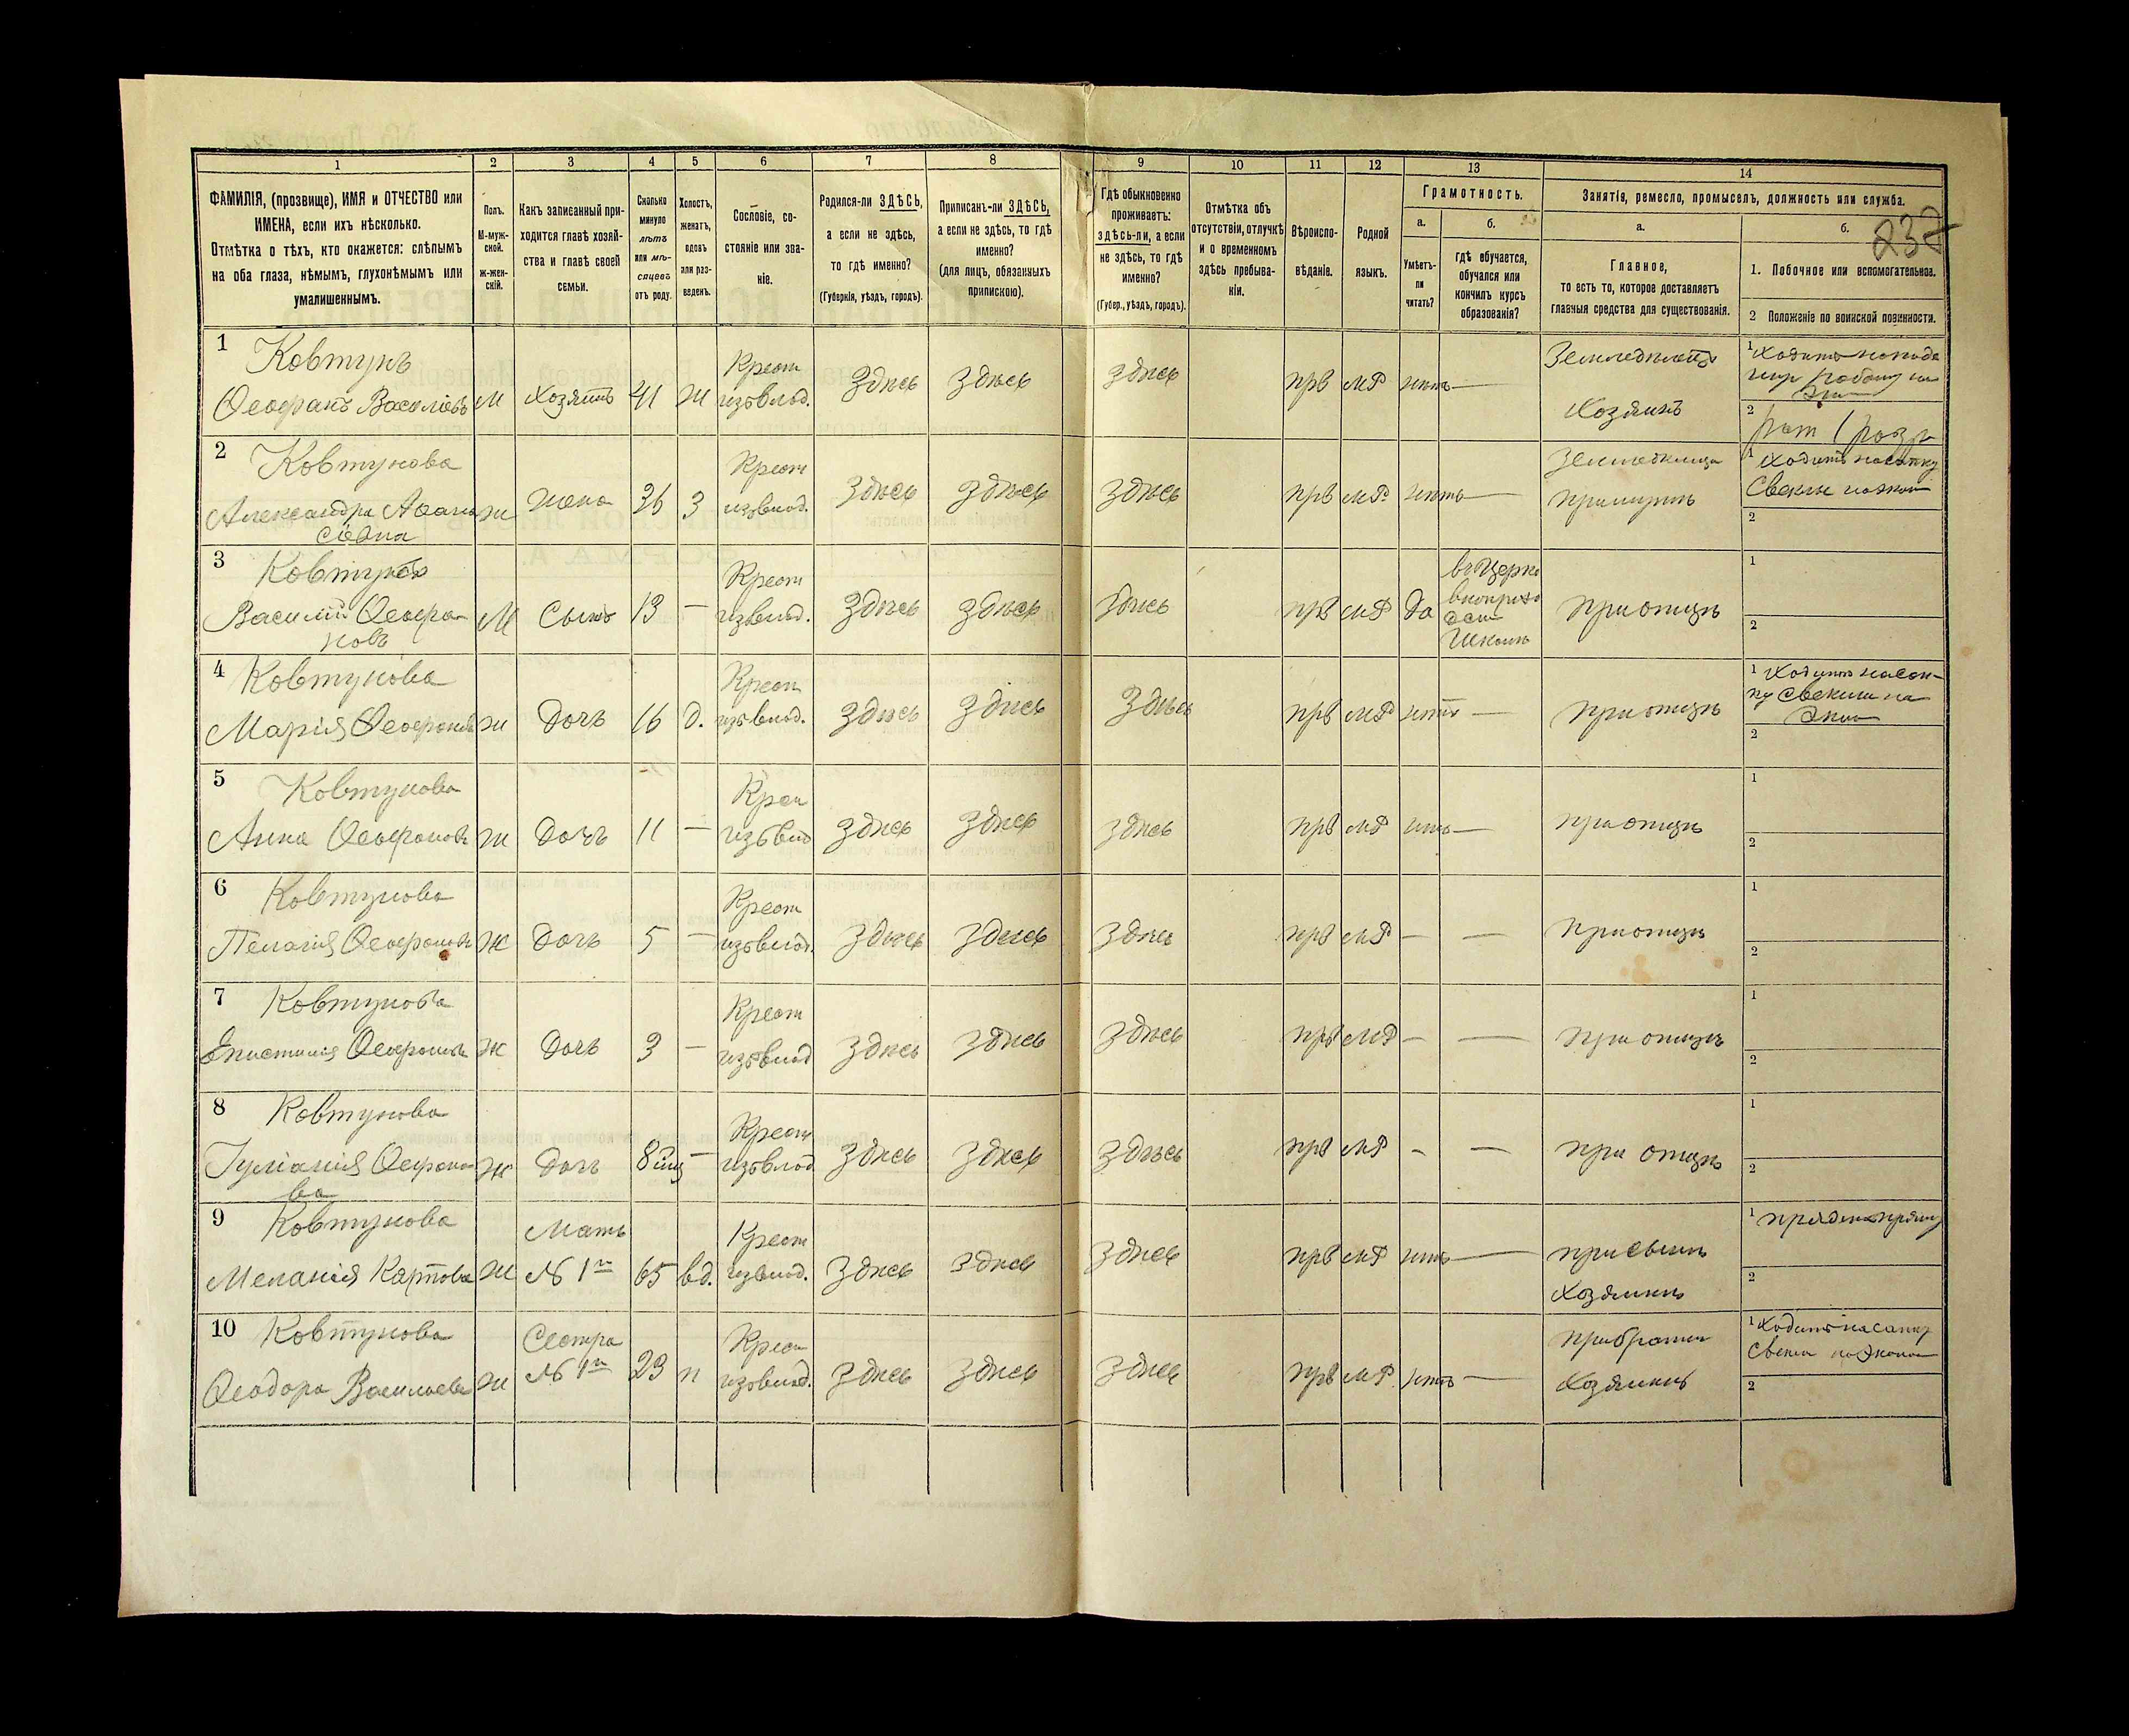 1 2 3 4 5 6 7 8 9 10 11 12 13 14
ФАМИЛІЯ, (прозвище), ИМЯ и ОТЧЕСТВО или
ИМЕНА, если ихъ нѣсколько.
Отмѣтка о тѣхъ, кто окажется: слѣпымъ
на оба глаза, нѣмымъ, глухонѣмымъ или
умалишеннымъ.
Полъ.
М-муж-
ской.
Ж-жен-
скій.
Какъ записанный при-
ходится главѣ хозяй-
ства и главѣ своей
семьи.
Сколько
минуло
лѣтъ
или мѣ-
сяцевъ
отъ роду.
Холостъ,
женатъ,
вдовъ
или раз-
веденъ.
Сословіе, со-
стояніе или зва-
ніе.
Родился-ли ЗДѢСЬ,
а если не здѣсь,
то гдѣ именно?
(Губернія, уѣздъ, городъ).
Приписанъ-ли ЗДѢСЬ,
а если не здѣсь, то гдѣ
именно?
(для лицъ, обязанныхъ
припискою).
Гдѣ обыкновенно
проживаетъ:
здѣсь-ли, а если
не здѣсь, то гдѣ
именно?
(Губер., уѣздъ, городъ).
Отмѣтка объ
отсутствіи, отлучкѣ
и о временномъ
здѣсь пребыва-
ніи.
Вѣроиспо-
вѣданіе.
Родной
языкъ.
Грамотность.
а.
Умѣетъ-
ли
читать?
б.
гдѣ обучается,
обучался или
кончилъ курсъ
образованія?
Занятія, ремесло, промыселъ, должность или служба.
а.
Главное,
то есть то, которое доставляетъ
главныя средства для существованія.
б.
237
1. Побочное или вспомогательное.
2 Положеніе по воинской повинности.
1 Ковтунъ
Ѳеофанъ Василіевъ
М
Хозяинъ
41
Ж
Крест
изъ влад.
Здѣсь
Здѣсь
Здѣсь
прв
МР
нѣтъ —
Земледѣлецъ
Хозяинъ
1
2
2 Ковтунова
Александра Аѳана
сіевна
ж
Жена
36
З
Крест
изъ влад.
Здѣсь
Здѣсь
Здѣсь
прв
МР
нѣтъ —
при мужѣ
1 Ходитъ на сапку
Свеклы
2
3 Ковтунъ
Василій Ѳеофа-
новъ
М
Сынъ
13
—
Крест
изъ влад.
Здѣсь
Здѣсь
Здѣсь
прв
МР
да
въ Церко
Школѣ
при отцѣ
1
2
4 Ковтунова
Марія Ѳеофанова
ж
Дочь
16
д.
Крест
изъ влад.
Здѣсь
Здѣсь
Здѣсь
прв
МР
нѣтъ —
при отцѣ
1 Ходитъ на сап-
ку Свеклы на
2
5 Ковтунова
Анна Ѳеофанова
ж
Дочь
11
—
Крест
изъ влад
Здѣсь
Здѣсь
Здѣсь
прв
МР
нѣтъ —
при отцѣ
1
2
6 Ковтунова
Пелагія Ѳеофанова
Ж
Дочь
5
—
Крест
изъ влад.
Здѣсь
Здѣсь
Здѣсь
прв
МР
—
—
при отцѣ
1
2
7 Ковтунова
Епистимія Ѳеофанова
Ж
Дочь
3
—
Крест
изъ влад
Здѣсь
Здѣсь
Здѣсь
прв
МР
—
—
при отцѣ
1
2
8 Ковтунова
Іуліанія Ѳеофано
ва
Ж
Дочь
8 мц
—
Крест
изъ влад
Здѣсь
Здѣсь
Здѣсь
прв
МР
—
—
при отцѣ
1
2
9 Ковтунова
Меланія Карпова
Ж
Мать
№ 1го
65
вд.
Крест
изъ влад.
Здѣсь
Здѣсь
Здѣсь
прв
МР
нѣтъ —
при сынѣ
Хозяинѣ
1
2
10 Ковтунова
Ѳеодора Васильева
ж
Сестра
№ 1го
23
Крест
изъ влад.
Здѣсь
Здѣсь
Здѣсь
прв
МР
нѣтъ —
при братѣ
Хозяинѣ
1 Ходитъ на сапку
Свеклы
2